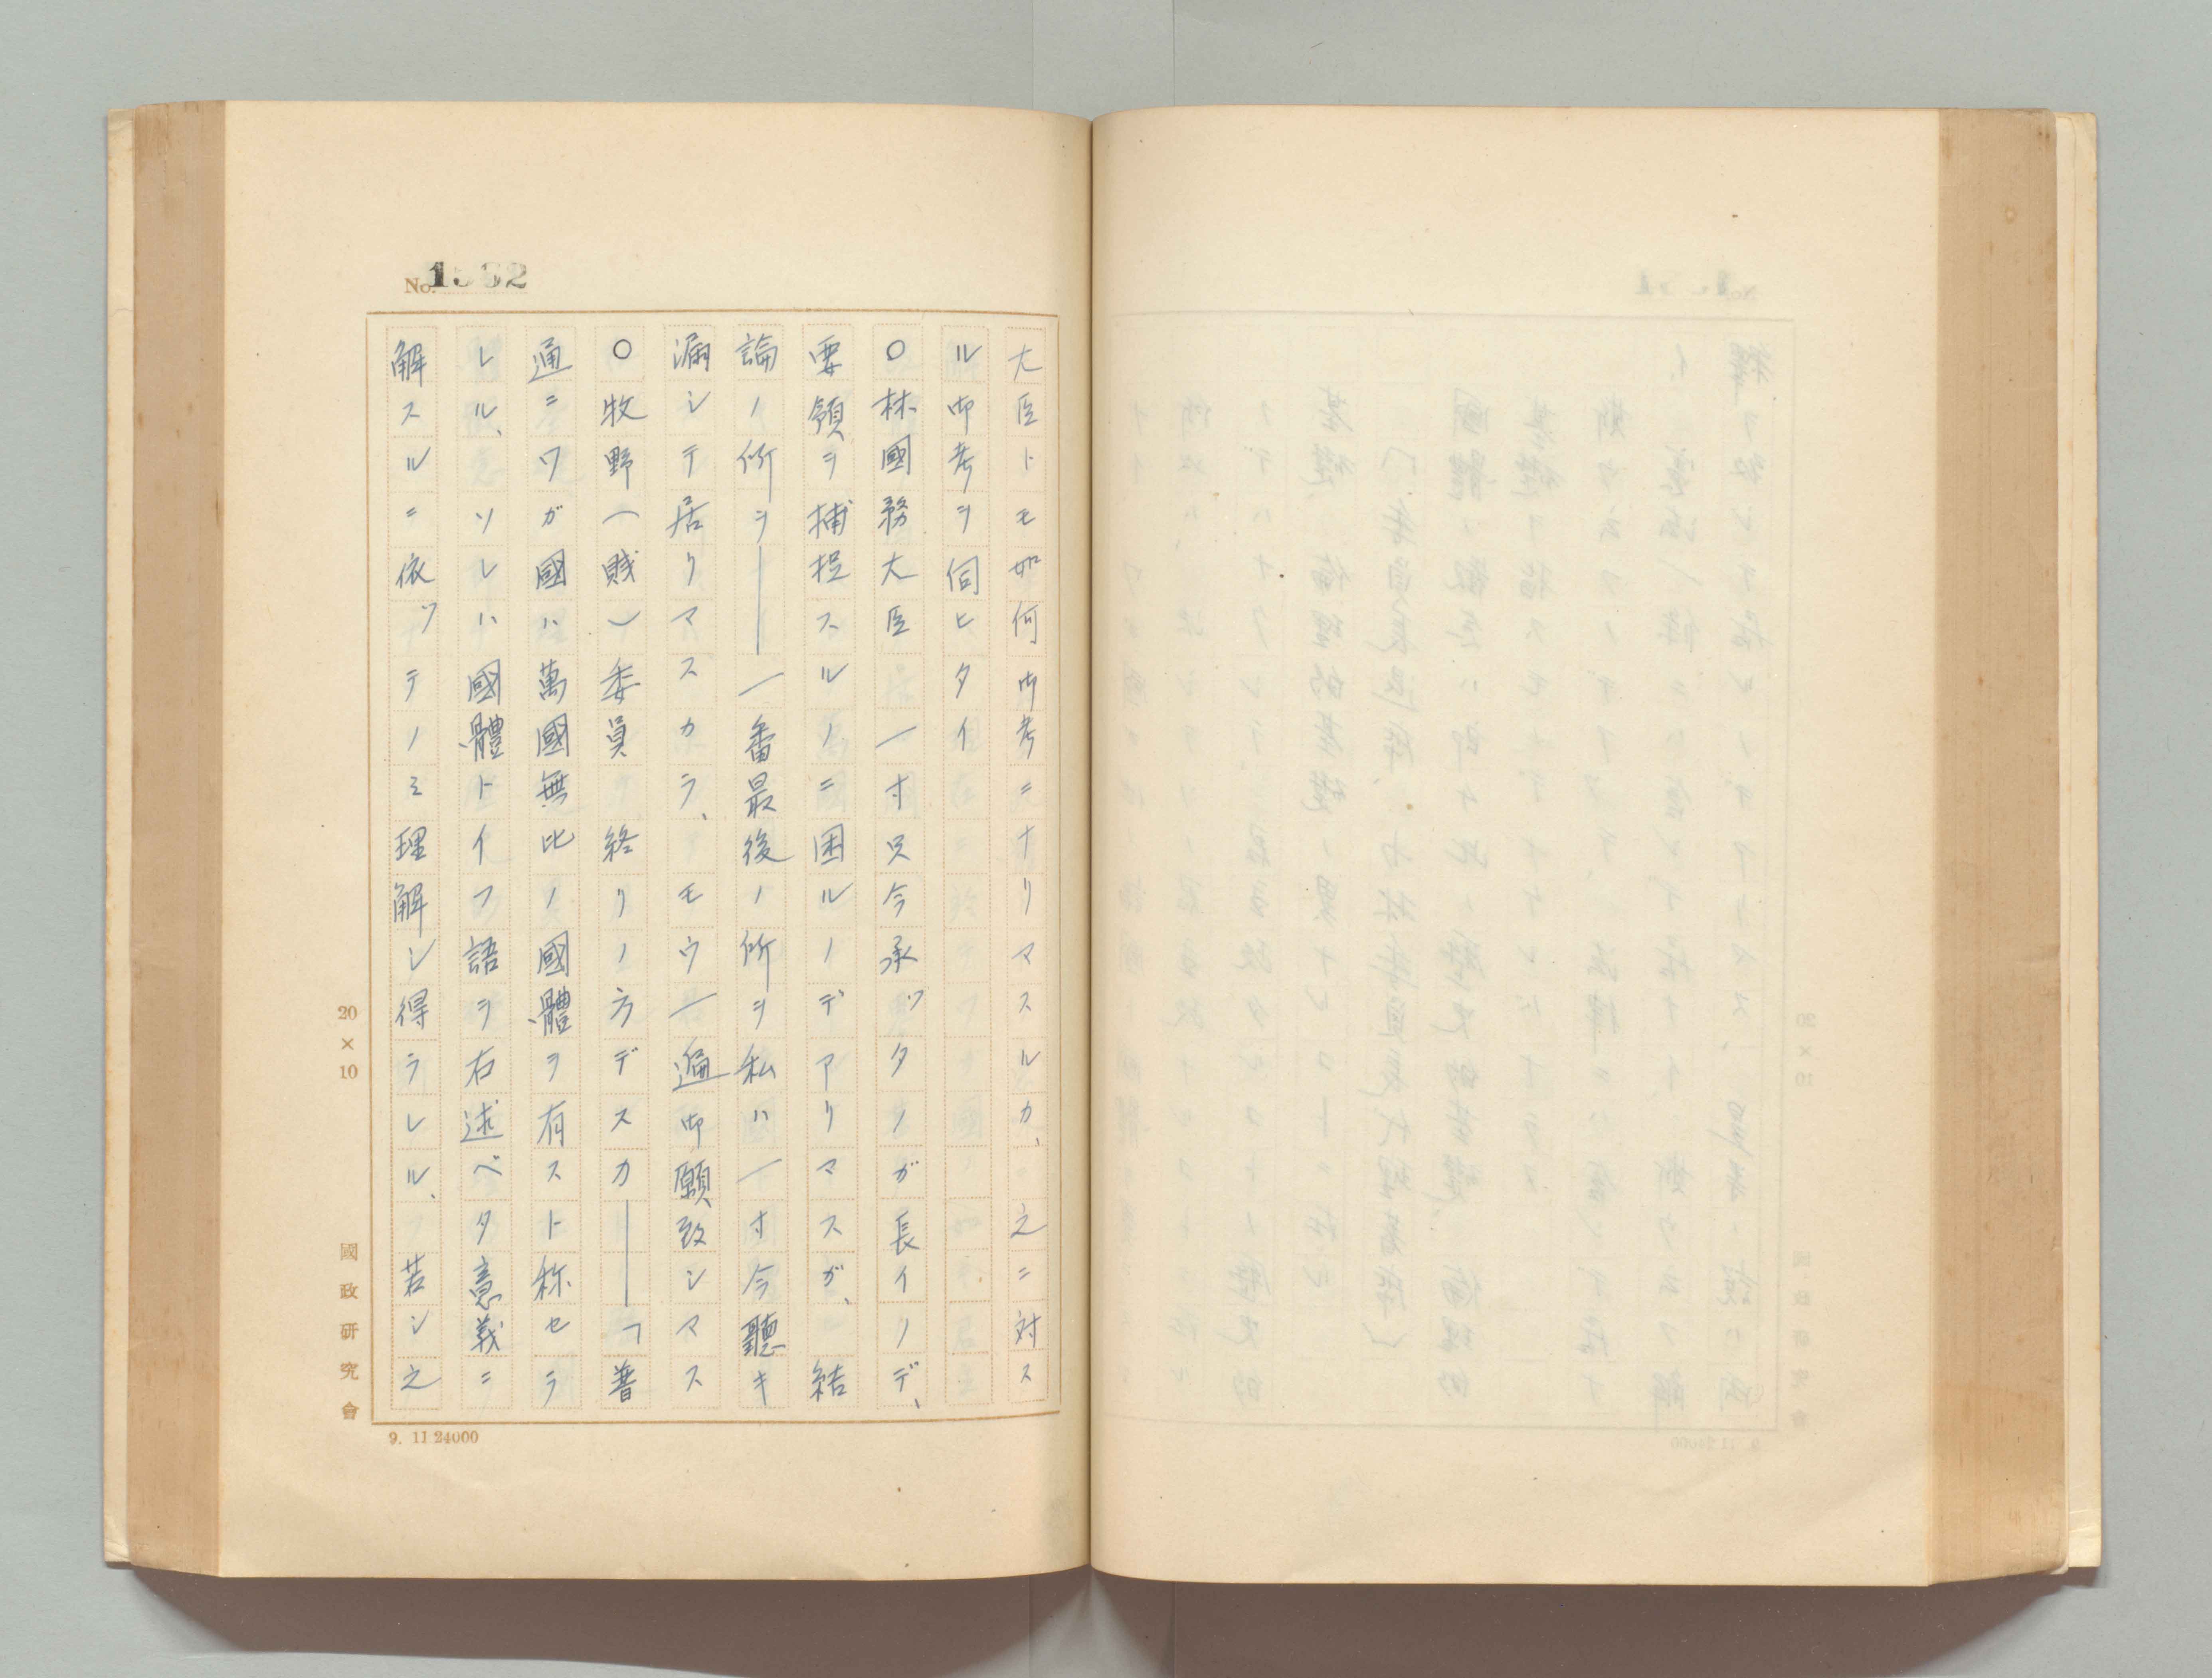 No. 1532
大臣トモ如何御考ニナリマスルカ、之ニ対ス
ル御考ヲ伺ヒタイ
〇林國務大臣 一寸只今承ツタノガ長イノデ、
要領ヲ捕捉スルノニ困ルノデアリマスガ、結
論ノ所ヲ――一番最後ノ所ヲ私ハ一寸今聽キ
漏シテ居リマスカラ、モウ一遍御願致シマス
〇牧野(賤)委員 終リノ方デスカ――「普
通ニワガ國ハ萬國無比ノ國體ヲ有スト称セラ
レル、ソレハ國體トイフ語ヲ右述ベタ意義ニ
解スルニ依ツテノミ理解シ得ラレル、若シ之
20×10
國政研究會
9. 11 24000